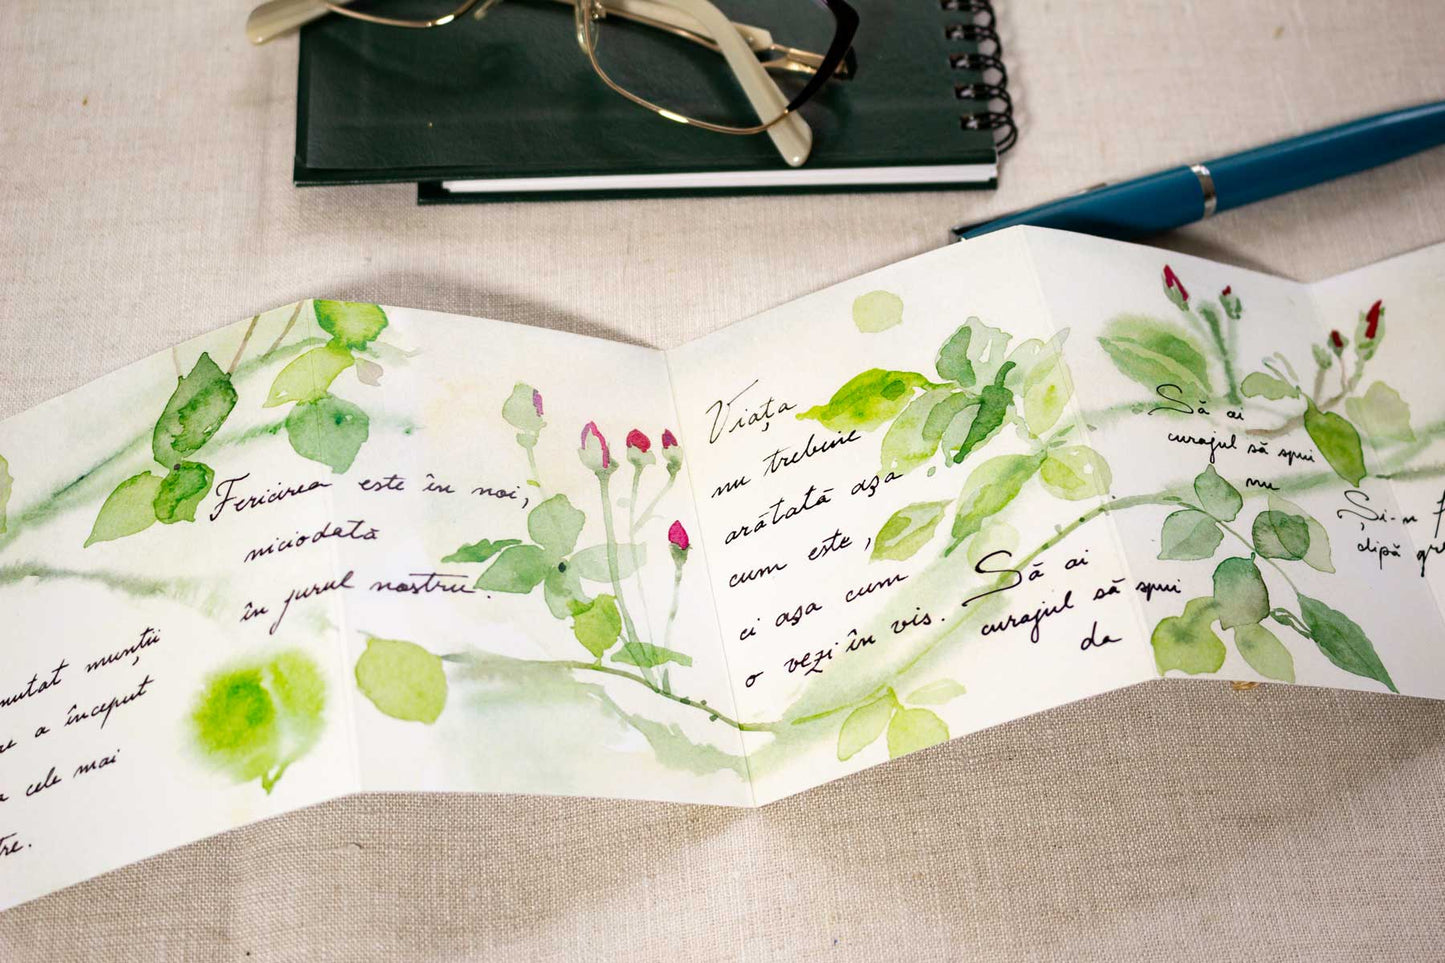 munții
a început
cele mai
Fericirea este în noi,
niciodată
în jurul nostru.
Viața
nu trebuie
arătată așa
cum este,
ci așa cum
o vezi în vis.
Să ai
curajul să spui
da
Să ai
curajul să spui
nu
Și-n